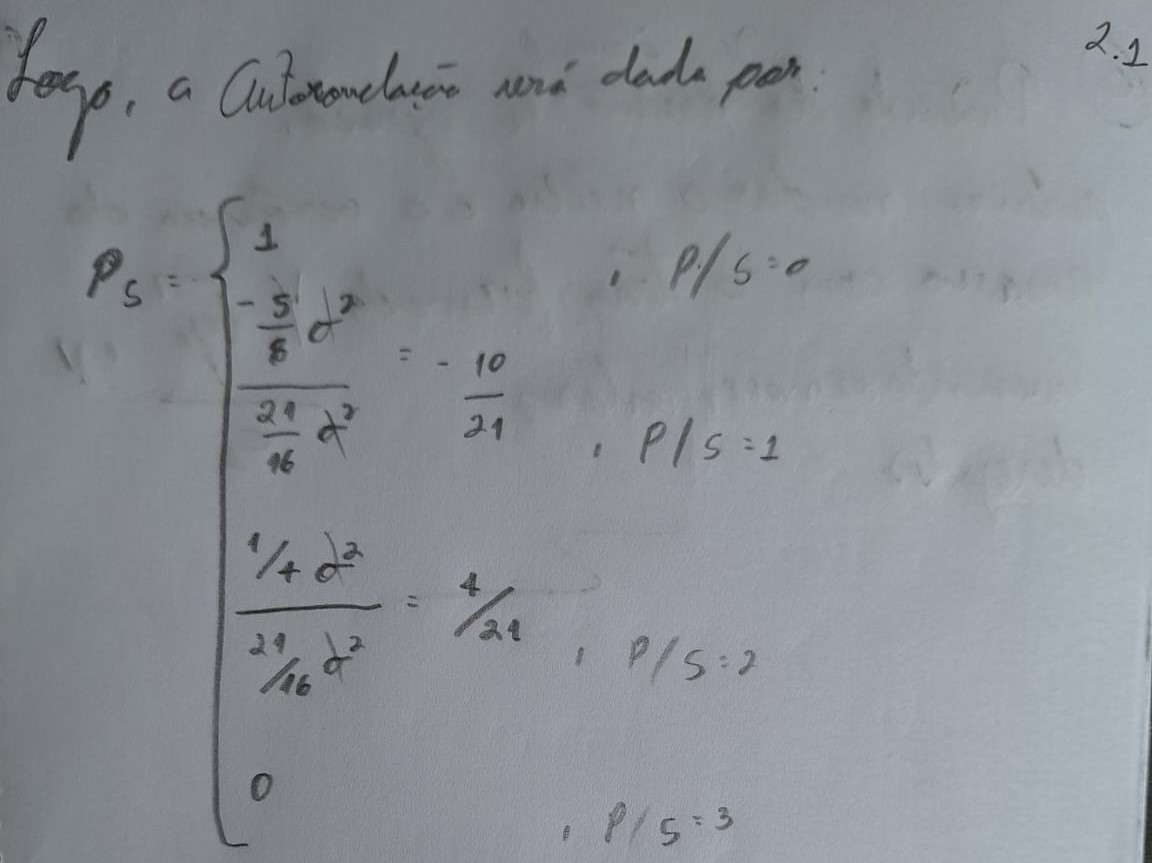 2.1
Logo, a Autocorrelação será dada por:
ρ_s = { 1 , p/ s=0
(-5/8 σ²) / (21/16 σ²) = -10/21 , p/ s=1
(1/4 σ²) / (21/16 σ²) = 4/21 , p/ s=2
0 , p/ s=3